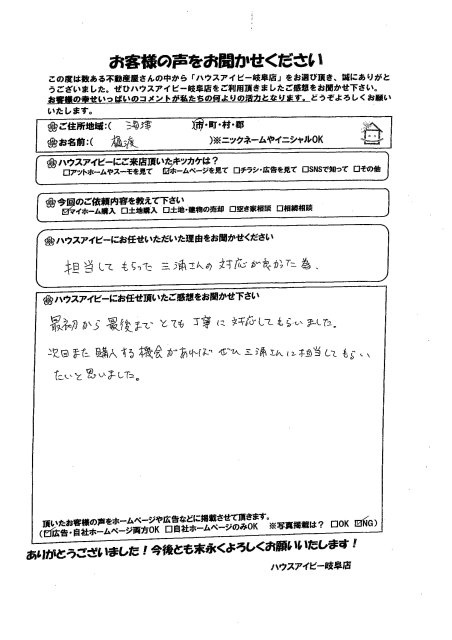 お客様の声をお聞かせください
この度は数ある不動産屋さんの中から「ハウスアイビー岐阜店」をお選び頂き、誠にありがと
うございました。ぜひハウスアイビー岐阜店をご利用頂きましたご感想をお聞かせ下さい。
お客様の幸せいっぱいのコメントが私たちの何よりの活力となります。どうぞよろしくお願い
いたします。
ご住所地域：( 海津 )市・町・村・郡
お名前：( 植渡 )※ニックネームやイニシャルOK
ハウスアイビーにご来店頂いたキッカケは？
□アットホームやスーモを見て ☑ホームページを見て □チラシ・広告を見て □SNSで知って □その他
今回のご依頼内容を教えて下さい
☑マイホーム購入 □土地購入 □土地・建物の売却 □空き家相談 □相続相談
ハウスアイビーにお任せいただいた理由をお聞かせください
担当してもらった三浦さんの対応が良かった為、
ハウスアイビーにお任せ頂いたご感想をお聞かせ下さい
最初から最後までとても丁寧に対応してもらいました。
次回また購入する機会があればぜひ三浦さんに担当してもらい
たいと思いました。
頂いたお客様の声をホームページや広告などに掲載させて頂きます。
(☑広告・自社ホームページ両方OK □自社ホームページのみOK ※写真掲載は？ □OK ☑NG)
ありがとうございました！今後とも末永くよろしくお願いいたします！
ハウスアイビー岐阜店